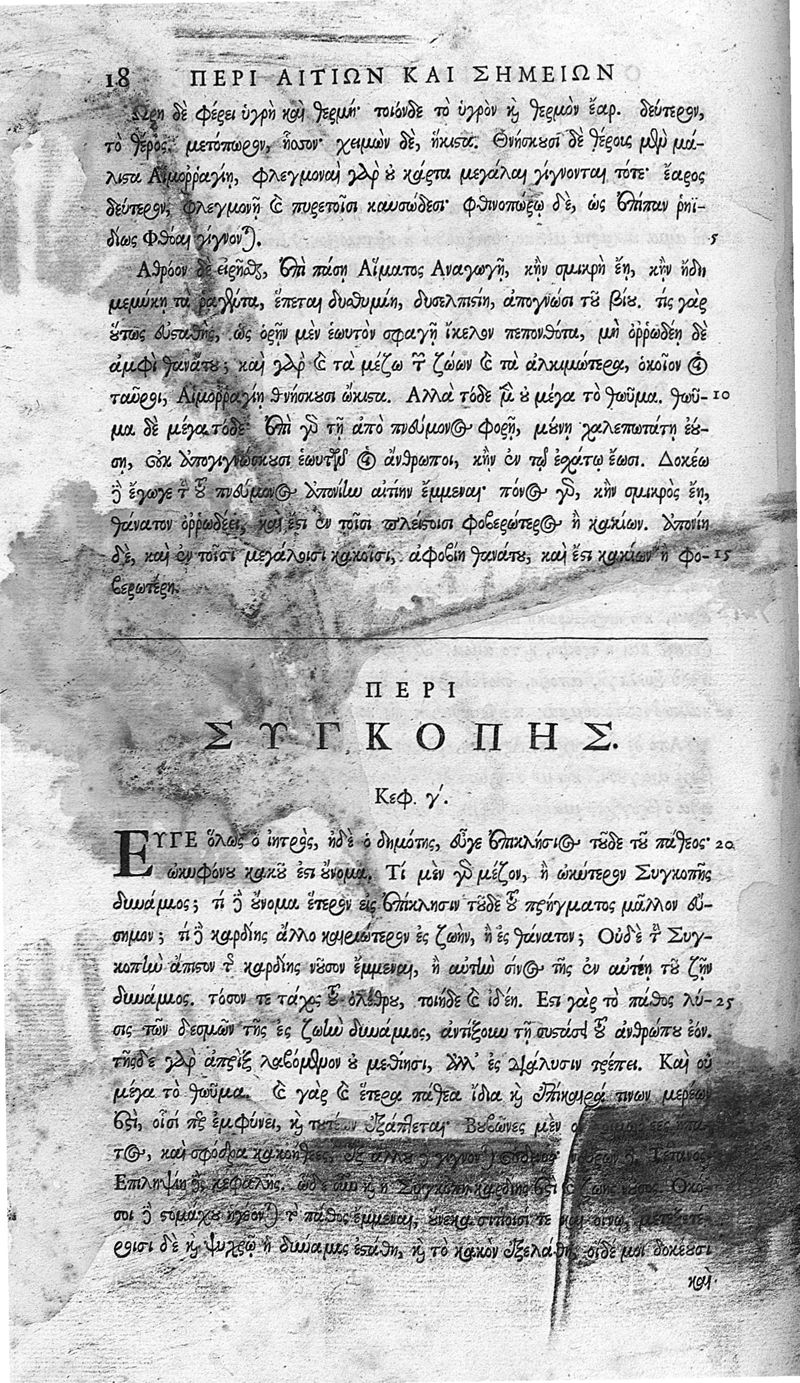 18 ΠΕΡΙ ΑΙΤΙΩΝ ΚΑΙ ΣΗΜΕΙΩΝ
Ὥρη δὲ φέρει ὑγρὴ καὶ θερμή· τοιόνδε τὸ ὑγρὸν καὶ θερμὸν ἔαρ. δεύτερον,
τὸ θέρος. μετόπωρον, ἧσσον· χειμὼν δὲ, ἥκιστα. Θνήσκουσι δὲ θέρεος μὲν μά-
λιστα Αἱμορραγίη, φλεγμοναὶ γὰρ οὐ κάρτα μεγάλαι γίγνονται τότε· ἔαρος
δεύτερον, φλεγμονῇ καὶ πυρετοῖσι καυσώδεσι· φθινοπώρῳ δὲ, ὡς ἐπίπαν ῥηϊ-
δίως Φθόαι γίγνονται. 5
Ἀθρόον δὲ εἰρῆσθαι, ἐπὶ πάσῃ Αἵματος Ἀναγωγῇ, κἢν σμικρὴ ἔῃ, κἢν ἤδη
μεμύκῃ τὰ ῥαγέντα, ἕπεται δυσθυμίη, δυσελπιστίη, ἀπογνώσι τοῦ βίου. τίς γὰρ
οὕτως εὐσταθὴς, ὡς ὁρῆν μὲν ἑωυτὸν σφαγῇ ἴκελον πεπονθότα, μὴ ὀρρωδέῃ δὲ
ἀμφὶ θανάτου; καὶ γὰρ καὶ τὰ μέζω τῶν ζώων καὶ τὰ ἀλκιμώτερα, ὁκοῖον οἱ
ταῦροι, Αἱμορραγίῃ θνήσκουσι ὤκιστα. Ἀλλὰ τόδε μὲν οὐ μέγα τὸ θωῦμα. θωῦ- 10
μα δὲ μέγα τόδε· ἐπὶ γὰρ τῇ ἀπὸ πνεύμονος φορῇ, μούνῃ χαλεπωτάτῃ ἐού-
σῃ, οὐκ ἀπογιγνώσκουσι ἑωυτῶν οἱ ἄνθρωποι, κἢν ἐν τῷ ἐσχάτῳ ἔωσι. Δοκέω
δὲ ἔγωγε τὴν τοῦ πνεύμονος ἀπονίην αἰτίην ἔμμεναι· πόνος γὰρ, κἢν σμικρὸς ἔῃ,
θάνατον ὀρρωδέει, καὶ ἔστι ἐν τοῖσι πλείστοισι φοβερώτερος ἢ κακίων. Ἀπονίη
δὲ, καὶ ἐν τοῖσι μεγάλοισι κακοῖσι, ἀφοβίη θανάτου, καὶ ἔστι κακίων ἢ φο- 15
βερωτέρη.
ΠΕΡΙ
ΣΥΓΚΟΠΗΣ.
Κεφ. γ΄.
ΕΥΓΕ ὅλως ὁ ἰητρὸς, ἠδὲ ὁ δημότης, εὖγε ἐπικλήσιος τοῦδε τοῦ πάθεος· 20
ὠκυφόνου κακοῦ ἐστι οὔνομα. Τί μὲν γὰρ μέζον, ἢ ὠκύτερον Συγκοπῆς
δυνάμιος; τί δὲ οὔνομα ἕτερον εἰς ἐπίκλησιν τοῦδε τοῦ πρήγματος μᾶλλον εὔ-
σημον; τί δὲ καρδίης ἄλλο καιριώτερον ἐς ζωὴν, ἢ ἐς θάνατον; Οὐδὲ τὴν Συγ-
κοπὴν ἄπιστον τῆς καρδίης νοῦσον ἔμμεναι, ἢ αὐτὴν σίνος τῆς ἐν αὐτέῃ τοῦ ζῆν
δυνάμιος. τόσον τε τάχος τοῦ ὀλέθρου, τοιήδε καὶ ἰδέη. Ἔστι γὰρ τὸ πάθος λύ- 25
σις τῶν δεσμῶν τῆς ἐς ζωὴν δυνάμιος, ἀντίξουν τῇ συστάσι τοῦ ἀνθρώπου ἐόν.
τῆσδε γὰρ ἀπρὶξ λαβόμενον οὐ μεθίησι, ἀλλ' ἐς διάλυσιν τρέπει. Καὶ οὐ
μέγα τὸ θωῦμα. καὶ γὰρ καὶ ἕτερα πάθεα ἴδια καὶ ἐπίκαιρά τινων μερέων
ἐστὶ, οἷσί περ ἐμφύνει, καὶ τουτέων ἐξάπτεται· Βουβῶνες μὲν ἥπα-
τος, καὶ σφόδρα κακοήθεες, ἐξ ἄλλου δὲ γίγνονται οὐδενός· νεύρων δὲ, Τέτανος·
Ἐπιληψίη δὲ, κεφαλῆς. ὧδε οὖν καὶ ἡ Συγκοπὴ καρδίης ἐστὶ καὶ ζωῆς νοῦσος. Ὁκό-
σοι δὲ στομάχου ἡγέονται τὸ πάθος ἔμμεναι, οὕνεκα σιτίοισί τε καὶ οἴνῳ, μετεξετέ-
ροισι δὲ καὶ ψυχρῷ ἡ δύναμις ἐστάθη, καὶ τὸ κακὸν ἐξελάθη, οἵδε μοι δοκέουσι
καὶ